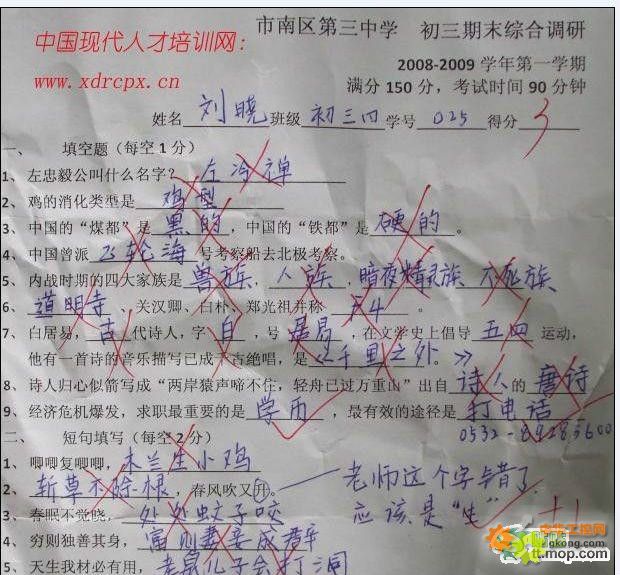 中国现代人才培训网:
www.xdrcpx.cn
市南区第三中学 初三期末综合调研
2008-2009 学年第一学期
满分 150 分，考试时间 90 分钟
姓名 刘晓 班级 初三四 学号 025 得分 3
一、 填空题（每空 1 分）
1、左忠毅公叫什么名字？ 左冷禅
2、鸡的消化类型是 鸡型
3、中国的“煤都”是 黑的 ，中国的“铁都”是 硬的 。
4、中国曾派 飞轮海 号考察船去北极考察。
5、内战时期的四大家族是 兽族，人族，暗夜精灵族 不死族
6、道明寺 、关汉卿、白朴、郑光祖并称 F4 。
7、白居易，古 代诗人，字 白 ，号 居易 ，在文学史上倡导 五四 运动，
他有一首诗的音乐描写已成千古绝唱，是 《千里之外。》
8、诗人归心似箭写成“两岸猿声啼不住，轻舟已过万重山”出自 诗人 的 唐诗
9、经济危机爆发，求职最重要的是 学历 ，最有效的途径是 打电话
0532-89283600
二、 短句填写（每空 2 分）
1、唧唧复唧唧，木兰生小鸡
2、斩草不除根 ，春风吹又升。——老师这个字错了，
应该是“生” +1
3、春眠不觉晓，处处蚊子咬
4、穷则独善其身，富则妻妾成群
5、天生我材必有用，老鼠儿子会打洞
gkong.com
tt.mop.com